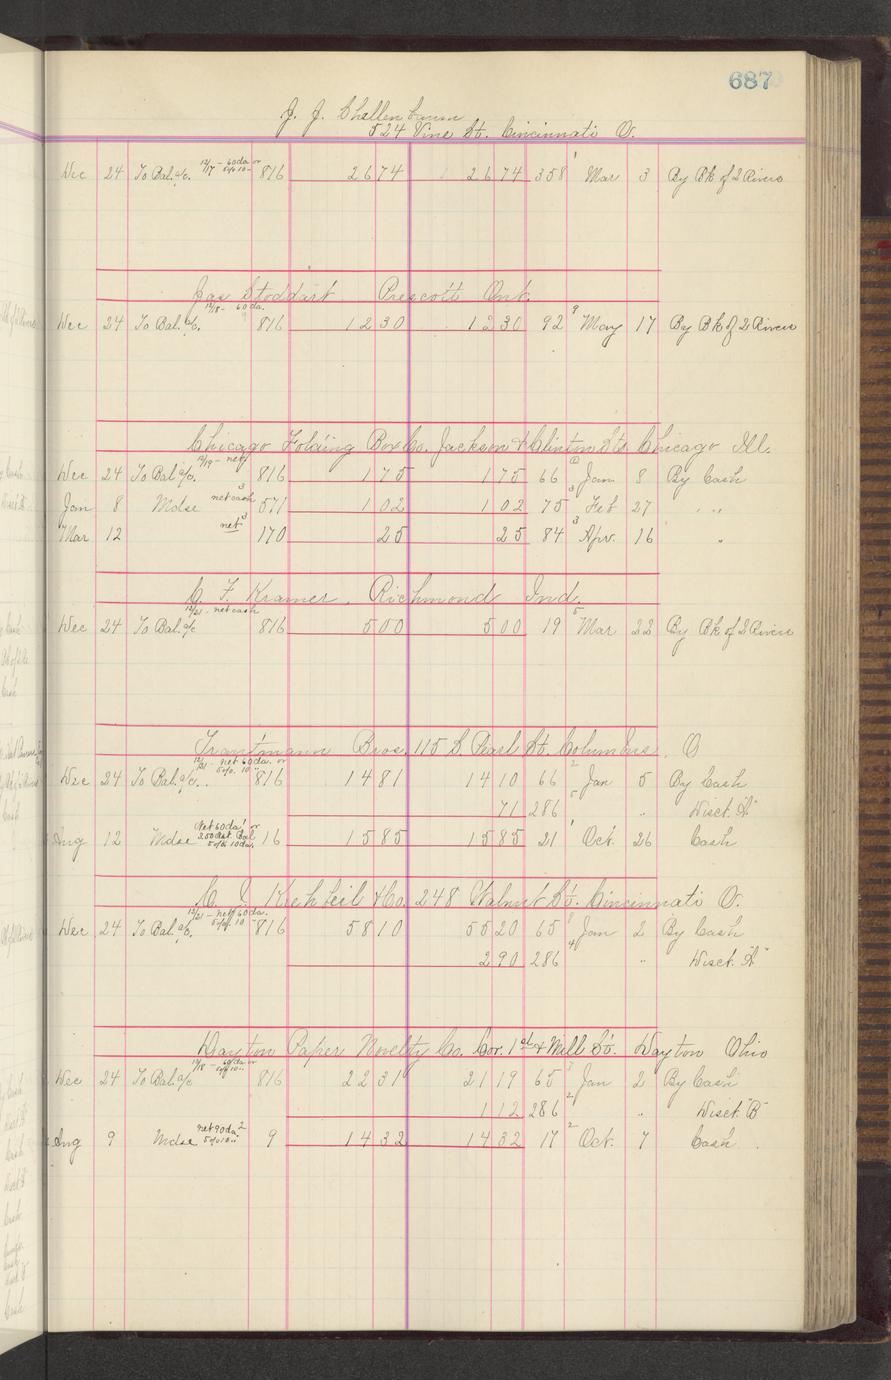 687
J. J. Shellenbaum
524 Vine St. Cincinnati O.
Dec 24 To Bal. a/c. 12/17 - 60 da or 5% 10 - 816 26 74 26 74 358 1 Mar 3 By Bk of 2 Rivers
Jas Stoddart Prescott Ont.
Dec 24 To Bal. a/c. 12/18 - 60 da. 816 12 30 12 30 92 9 May 17 By Bk of 2 Rivers
Chicago Folding Box Co. Jackson & Clinton Sts. Chicago Ill.
Dec 24 To Bal a/c. 12/19 - net 816 1 75 1 75 66 Jan 8 By Cash
Jan 8 Mdse net cash 3 571 1 02 1 02 75 3 Feb 27 " "
Mar 12 net 3 170 25 25 84 3 Apr. 16 "
C. F. Kramer, Richmond Ind.
Dec 24 To Bal. a/c 12/21 - net cash 816 5 00 5 00 19 5 Mar 22 By Bk of 2 Rivers
Trautmann Bros. 115 S Pearl St. Columbus, O
Dec 24 To Bal. a/c. 12/21 - net 60 da. or 5% 10 " 816 14 81 14 10 66 2 Jan 5 By Cash
71 286 " Disct. "A"
Aug 12 Mdse Net 60 da 1 or 5% 10 da. 16 15 85 15 85 21 1 Oct. 26 Cash
248 Walnut St. Cincinnati O.
Dec 24 To Bal. a/c. 12/21 - net 60 da. 5% 10 " 816 58 10 55 20 65 8 Jan 2 By Cash
2 90 286 4 " Disct. "A"
Dayton Paper Novelty Co. Cor. 1st & Mill St. Dayton Ohio
Dec 24 To Bal a/c 12/18 - 60 da or 5% 10 " 816 22 31 21 19 65 Jan 2 By Cash
1 12 286 2 " Disct "B"
Aug 9 Mdse net 90 da 2 5% 10 " 9 14 32 14 32 17 2 Oct. 7 Cash